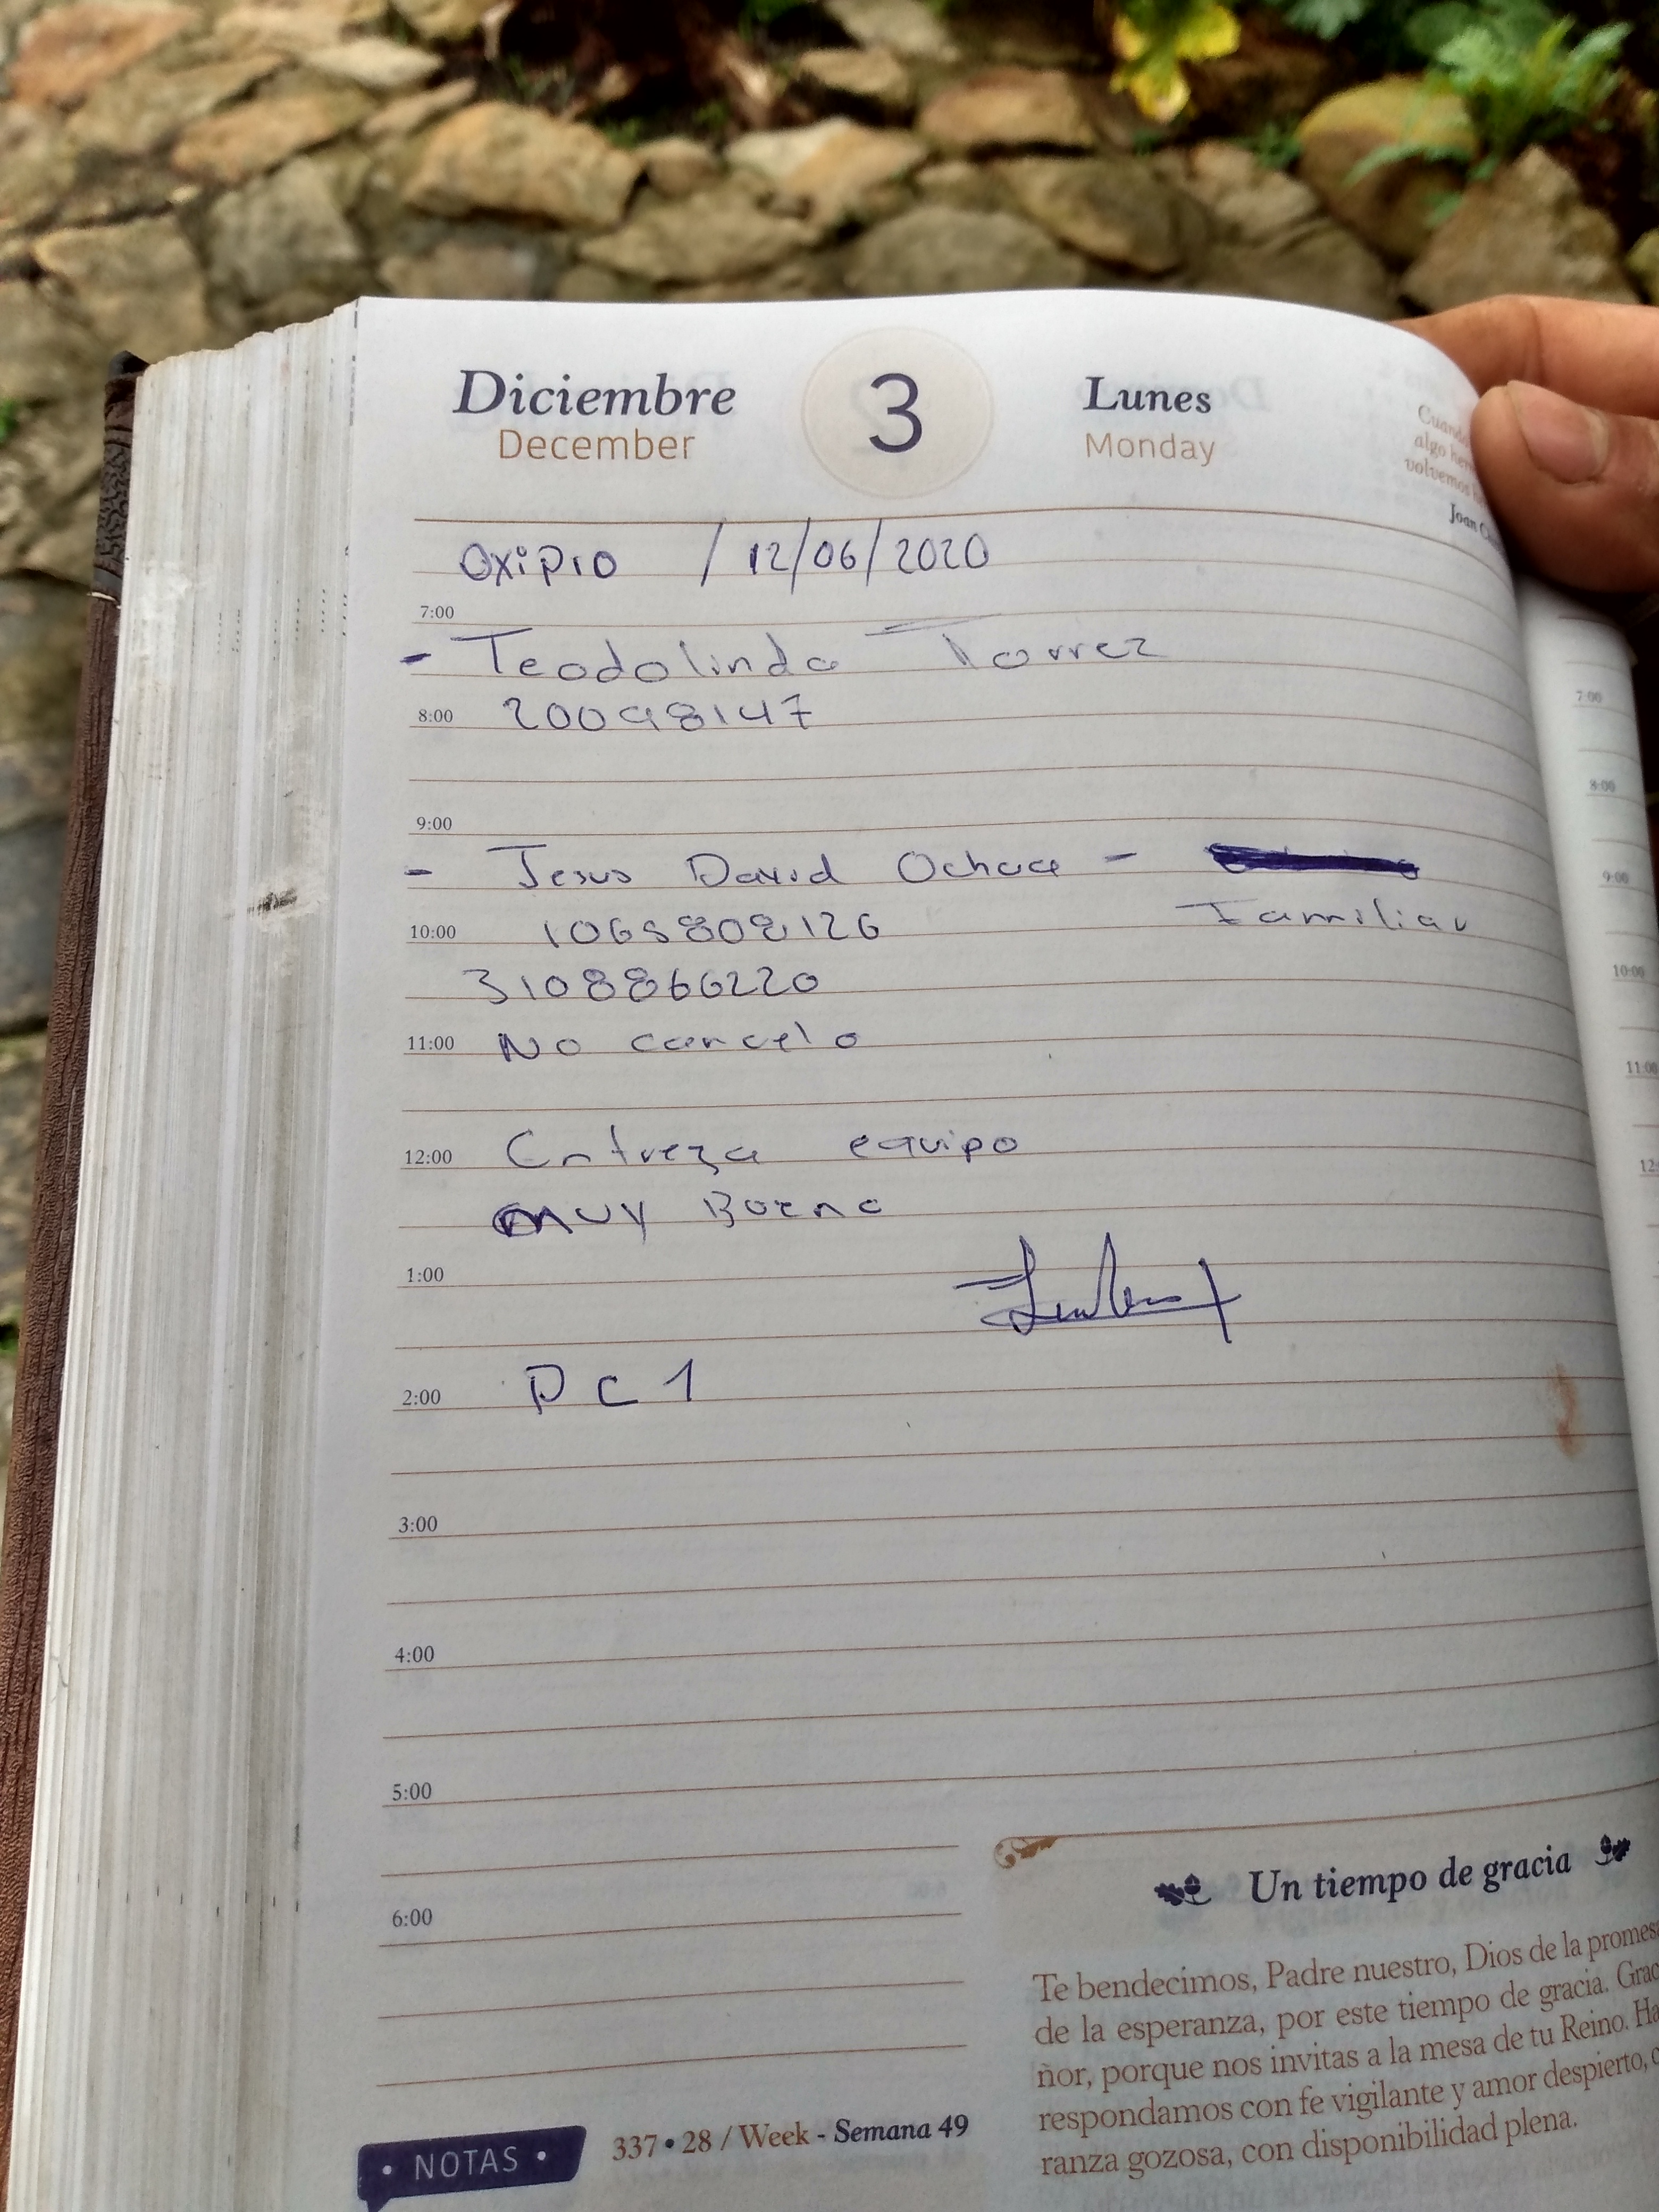 Diciembre 3 Lunes
December Monday
Cuando
algo
volvemos
Joan
Oxipro / 12/06/2020
7:00
- Teodolinda Torrez
8:00 20098147
9:00
- Jesus David Ochoa -
10:00 1065808126 Familiar
3108866220
11:00 No cancelo
12:00 Entrega equipo
muy Bueno
1:00
2:00 PC 1
3:00
4:00
5:00
6:00
Un tiempo de gracia
Te bendecimos, Padre nuestro, Dios de la
de la esperanza, por este tiempo de gracia.
ñor, porque nos invitas a la mesa de tu Reino.
respondamos con fe vigilante y amor despierto,
ranza gozosa, con disponibilidad plena.
• NOTAS •
337•28 / Week - Semana 49
7:00
8:00
9:00
10:00
11:00